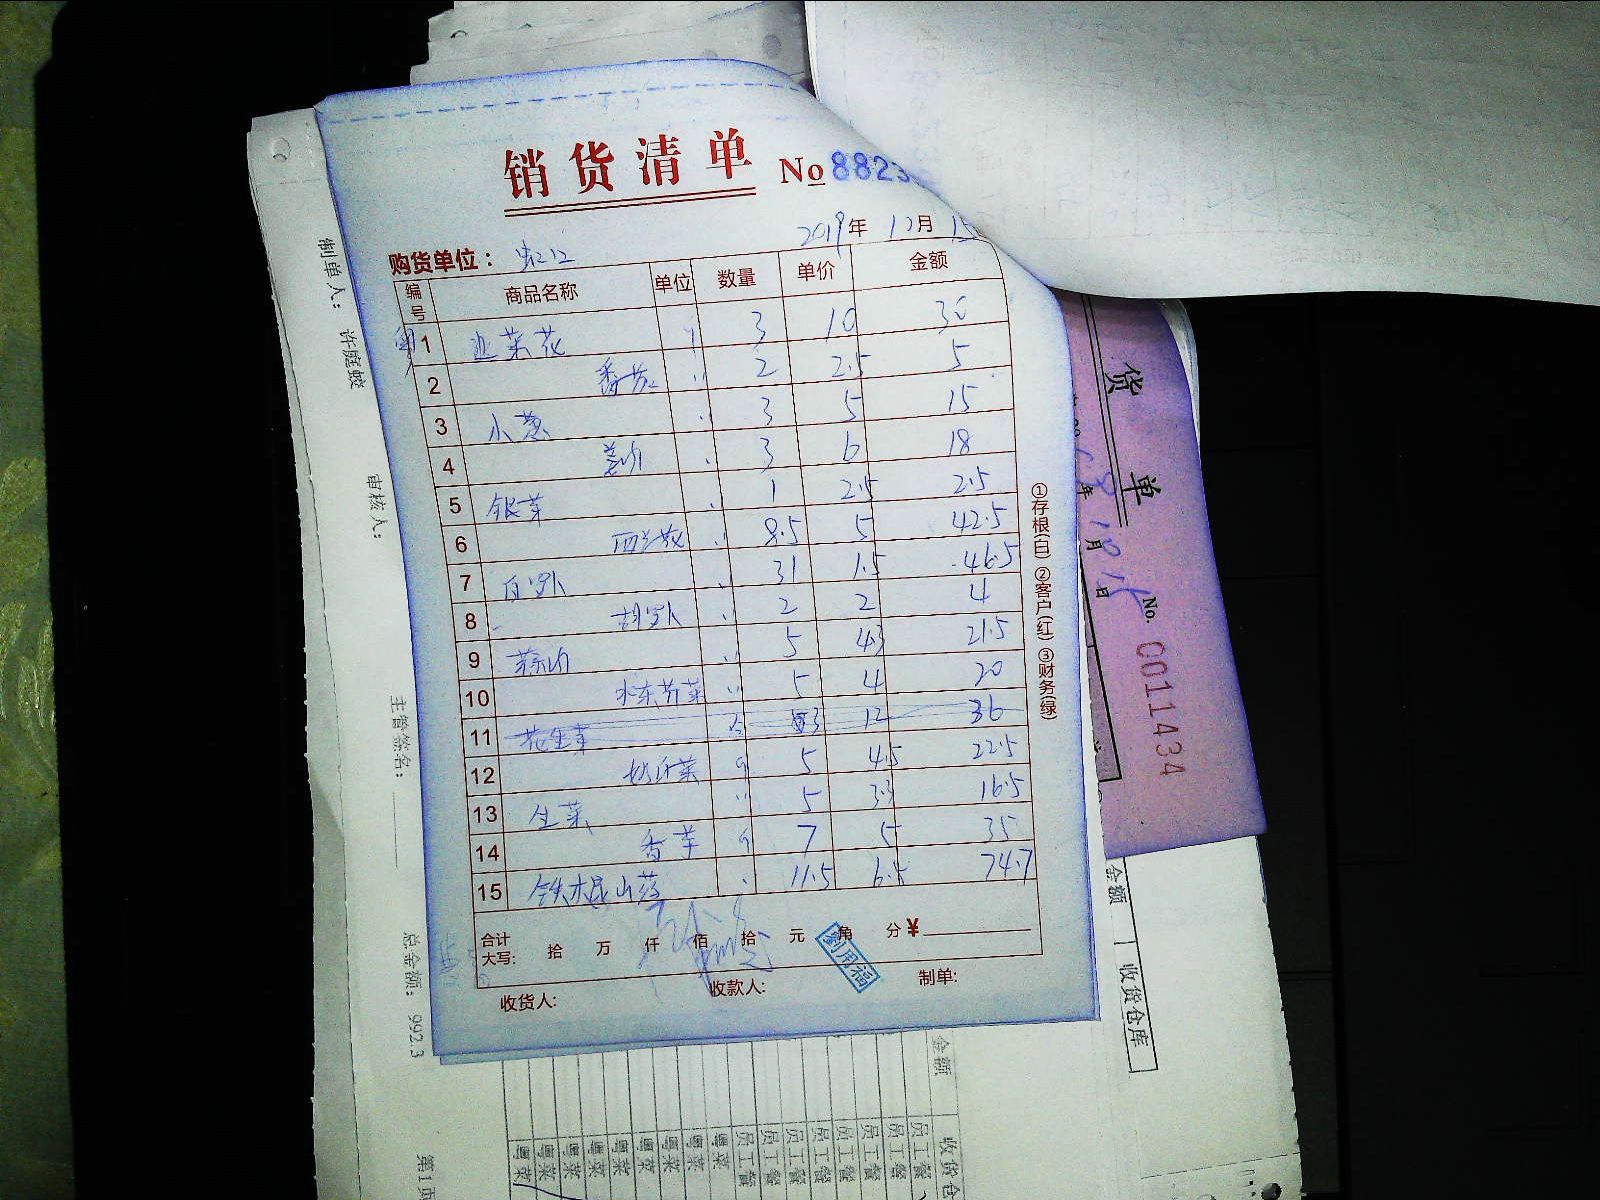 销货清单 No 8823
2019年 12月
购货单位：
编号 商品名称 单位 数量 单价 金额
1 韭菜花 3 10 30
2 番茄 〃 2 2.5 5
3 小葱 3 5 15
4 3 6 18
5 银芽 1 2.5 2.5
6 西兰花 8.5 5 42.5
7 白罗卜 31 1.5 46.5
8 胡罗卜 2 2 4
9 〃 5 4.3 21.5
10 水东芥菜 〃 5 4 20
11 花生芽 3 12 36
12 5 4.5 22.5
13 生菜 〃 5 3.3 16.5
14 香芋 7 5 35
15 铁棍山药 11.5 6.5 74.7
合计大写： 拾 万 仟 佰 拾 元 角 分 ¥
刘用福
收货人： 收款人： 制单：
①存根(白) ②客户(红) ③财务(绿)
制单人： 许庭蛟
审核人：
主管签名：
总金额： 992.3
第1页
货单
年 月 日
No. 0011434
金额 收货仓库
金额 收货仓
员工餐 员工餐 员工餐 员工餐 员工餐 员工餐 员工餐 员工餐
粤菜 粤菜 粤菜 粤菜 粤菜 粤菜 粤菜 粤菜 粤菜